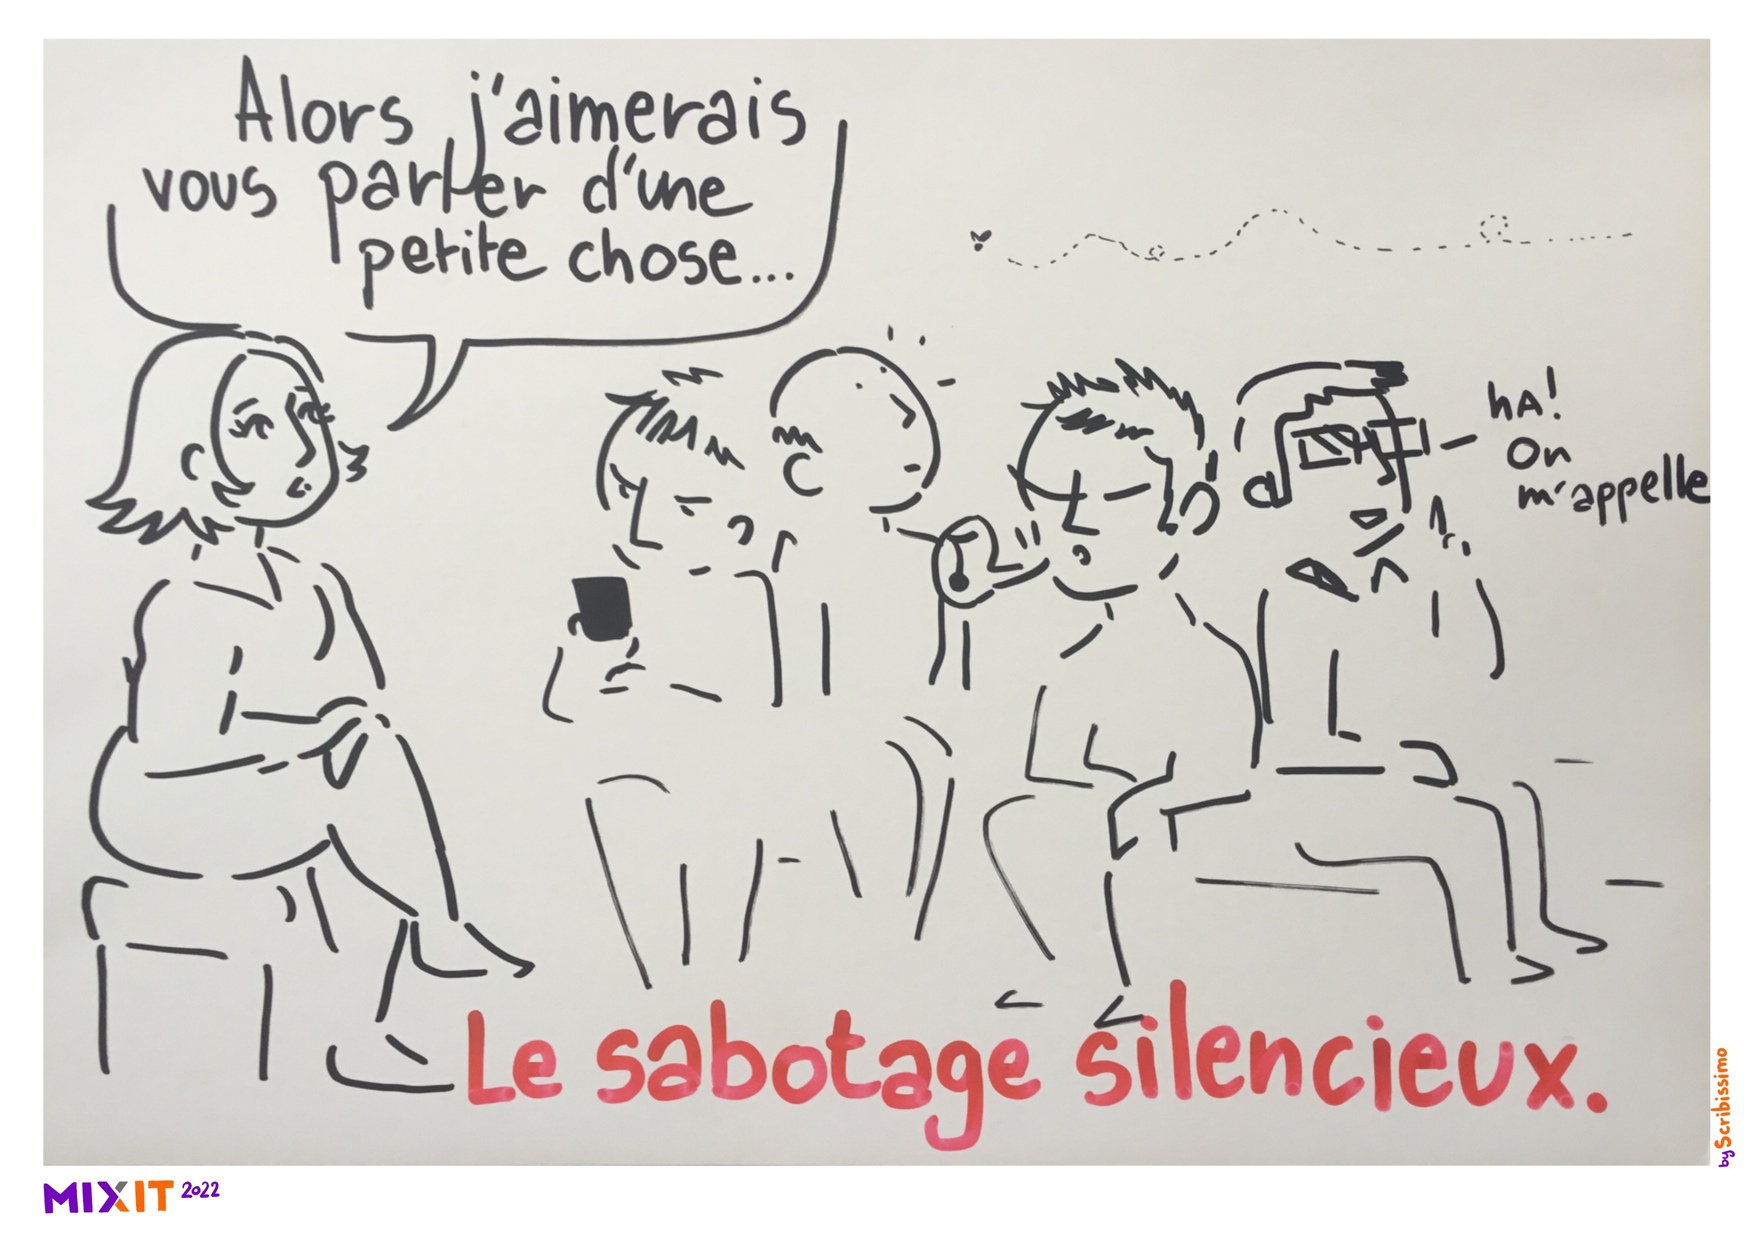 Alors j'aimerais
vous parler d'une
petite chose...
hA!
On
m'appelle
Le sabotage silencieux.
by Scribissimo
MIXIT 2022